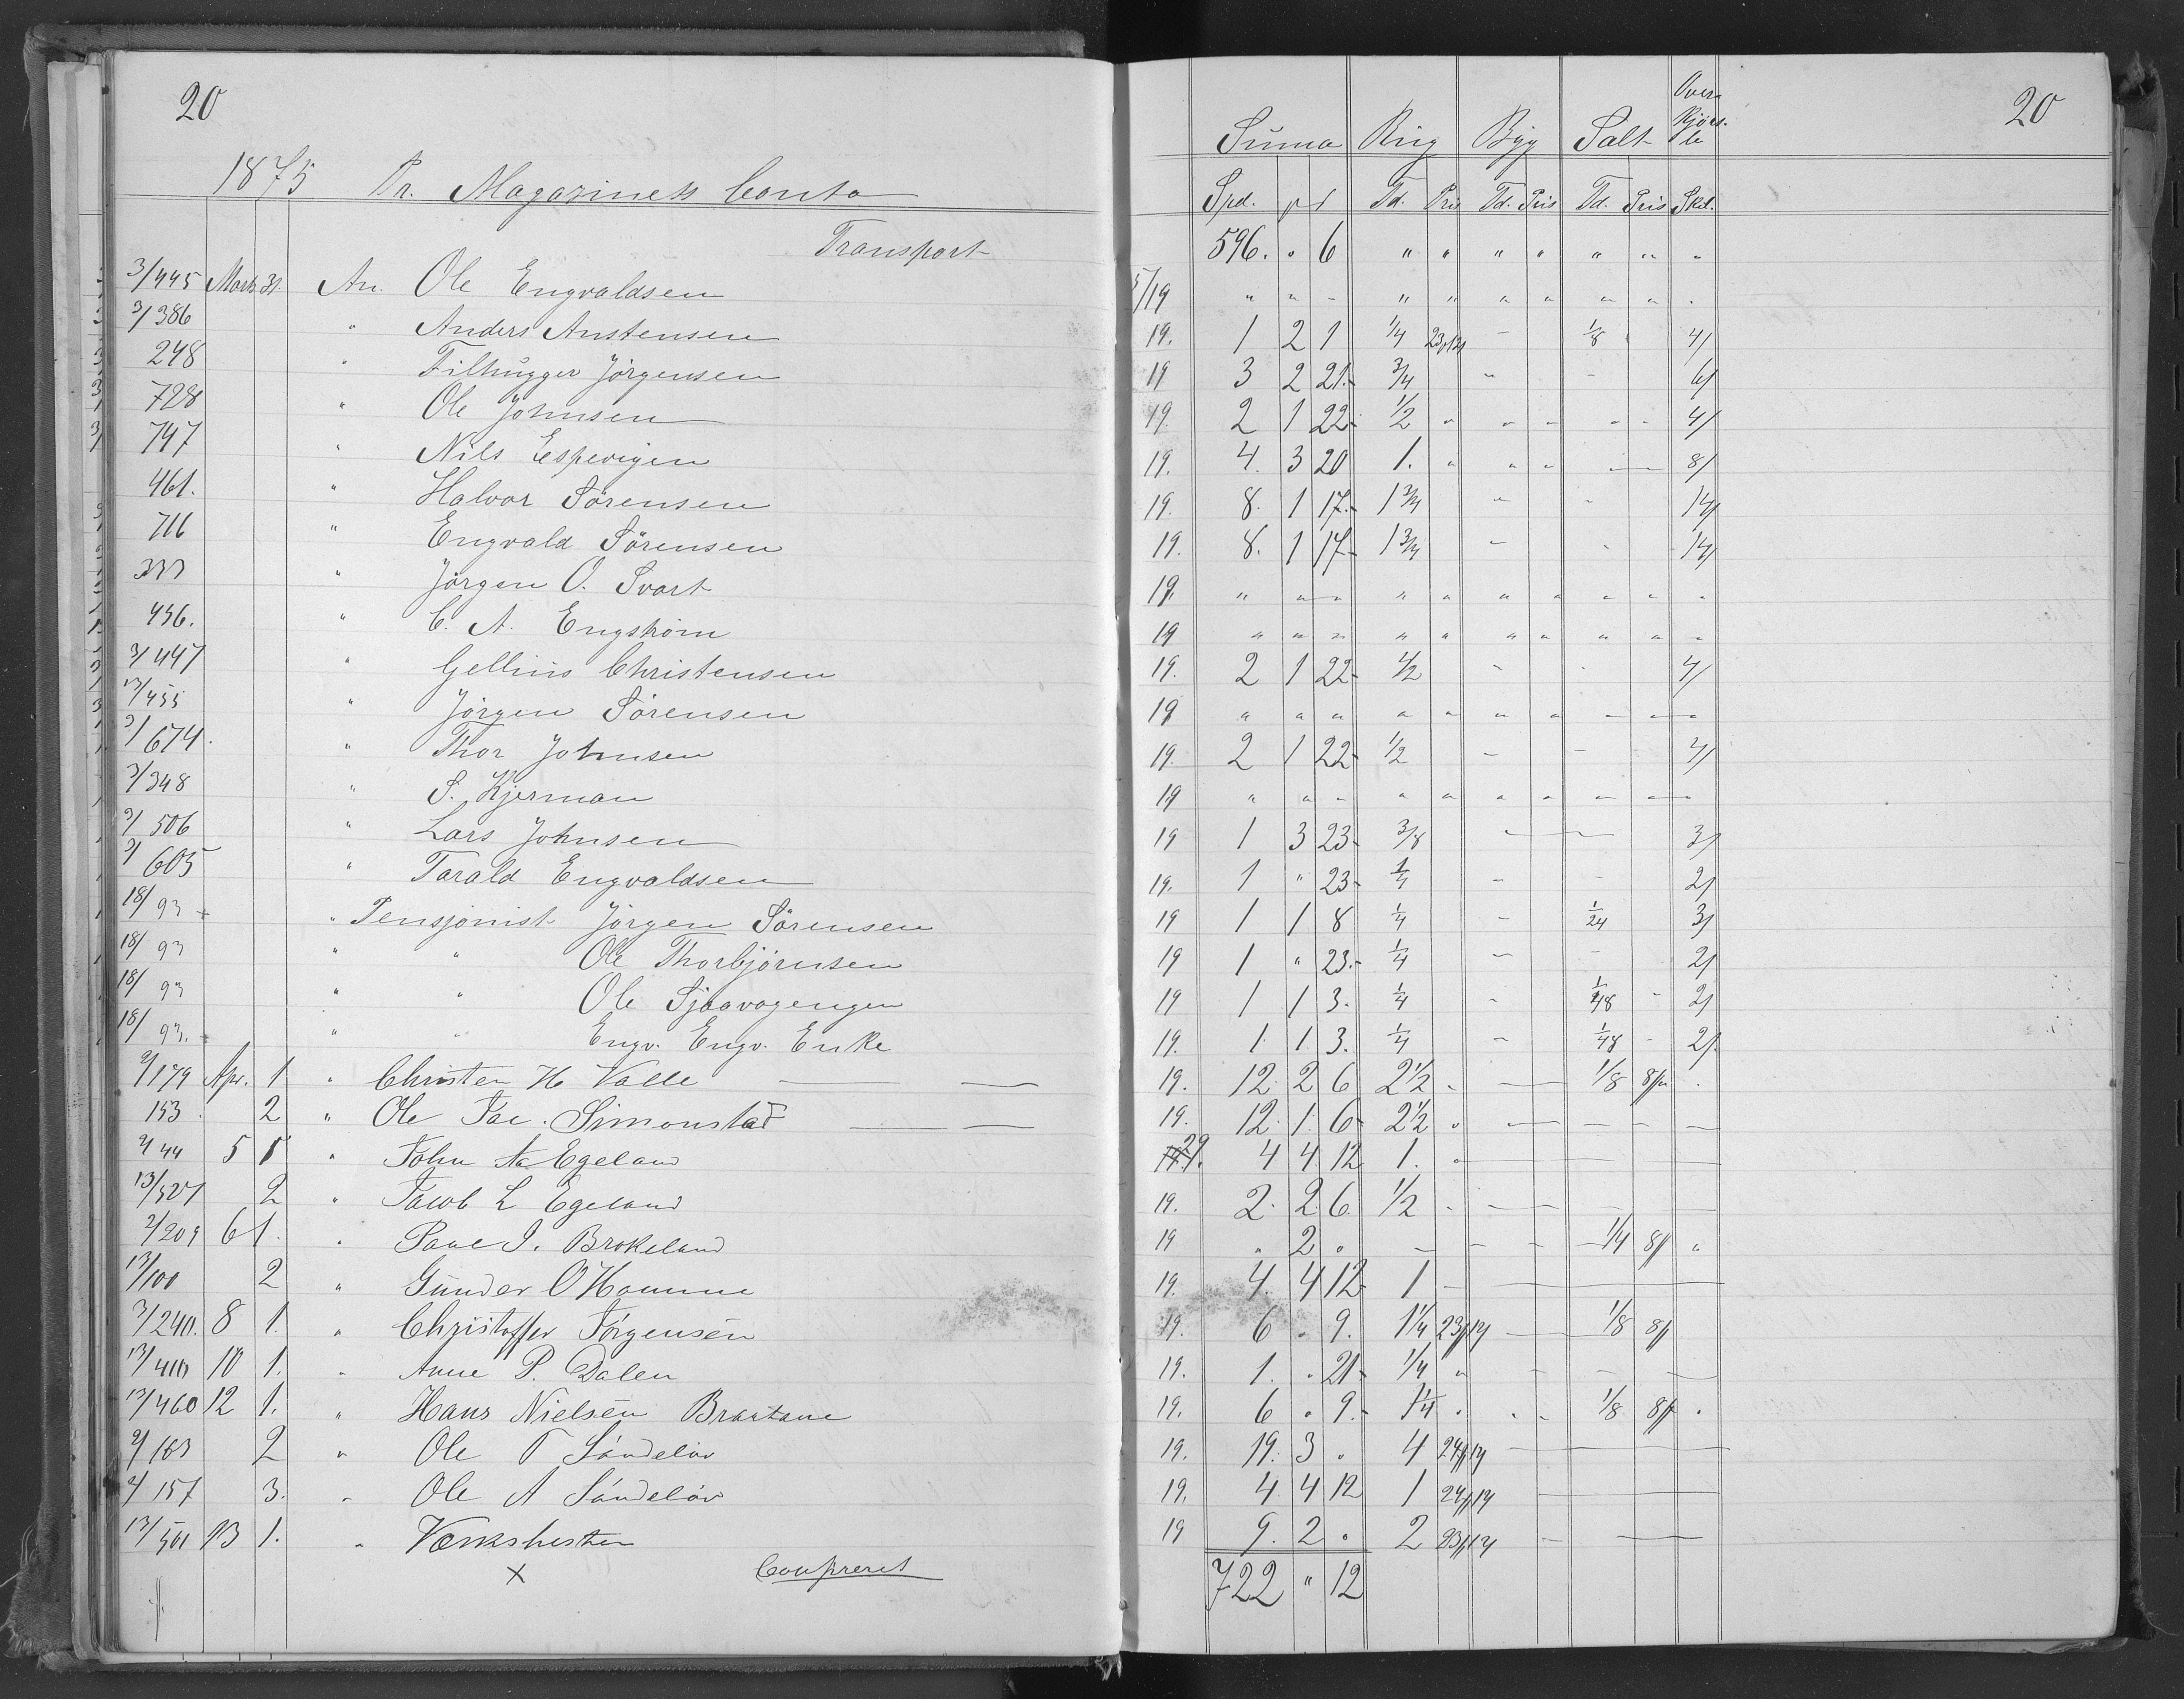 20
1875 Pr. Magazinets Conto
Transport
3/445 Marts 31 An. Ole Engvaldsen
3/386 " Anders Anstensen
248 " Filhugger Jörgensen
728 " Ole Johnsen
747 " Nils Espevigen
461. " Halvor Sörensen
716 " Engvald Sörensen
333 " Jörgen O. Svart
456. " C. A. Engström
3/447 " Gellius Christensen
13/455 " Jörgen Sörensen
3/674. " Thor Johnsen
3/348 " S. Kjerman
3/506 " Lars Johnsen
3/605 " Tarald Engvaldsen
18/93 " Pensjonist Jörgen Sörensen
18/93 " " Ole Thorbjörnsen
18/93 " " Ole Sjaavogengen
18/93. " " Engv. Engv. Enke
2/179 Apr. 1 " Christen H Valle
153. 2 " Ole Jac. Simonstad
2/44 5 1 " John Aa Egeland
13/527 2 " Jacob L Egeland
2/209 6 1. " Paul J. Brokeland
13/100 2 " Gunder O Homme
3/240. 8 1. " Christoffer Jörgensen
13/410 10 1. " Anne P. Dalen
13/460 12 1. " Hans Nielsen Braatane
2/163 2 " Ole T Sándelöv
2/157 3. " Ole A Sándelöv
13/501 13 1. " Værkshesten
x Confereret
20
Suma Rug Byg Salt Over Kjörs le
Spd. ₰ Td. Pris Td. Pris Td. Pris Skil.
596. " 6 " " " " " " "
5/19 " " - " " " " " " .
19. 1 2 1 1/4 - 1/8 4/
19 3 2 21. 3/4 " - 6/
19. 2 1 22. 1/2 " " - " - 4/
19. 4. 3 20 1. " " " - 8/
19. 8. 1 17. 1 3/4 - - 14/
19. 8. 1 17 1 3/4 - - 14/
19. " " " " " " " " " .
19 " " " " " " " " " -
19. 2 1 22 1/2 - - 4/
19 " " " " " " " - - -
19. 2 1 22 1/2 - - 4/
19 " " - " " " " - - -
19 1 3 23 3/8 - - 3/
19. 1 " 23 1/4 - - 2/
19 1 1 8 1/4 - 1/24 3/
19 1 " 23. 1/4 - - 2/
19 1 1 3. 1/4 - 1/48 - 2/
19. 1. 1. 3. 1/4 - 1/48 - 2/
19. 12. 2 6 2 1/2 - - 1/8 .
19. 12. 1. 6 2 1/2 " - - - -
29. 4 4 12 1. "
19. 2. 2 6. 1/2 - - - -
19 " 2 " - - - 1/4 8/ "
19. 4. 4 12 1 -
19. 6 " 9. 1 1/4 23/14 - 1/8 8/
19. 1. " 21 1/4 " - - -
19. 6 " 9. 1 1/4 " " - 1/8 8/ "
19. 19. 3 " 4 24/14 -
19. 4. 4 12 1 24/14 -
19 9. 2 " 2 23/14 - -
722 " 12